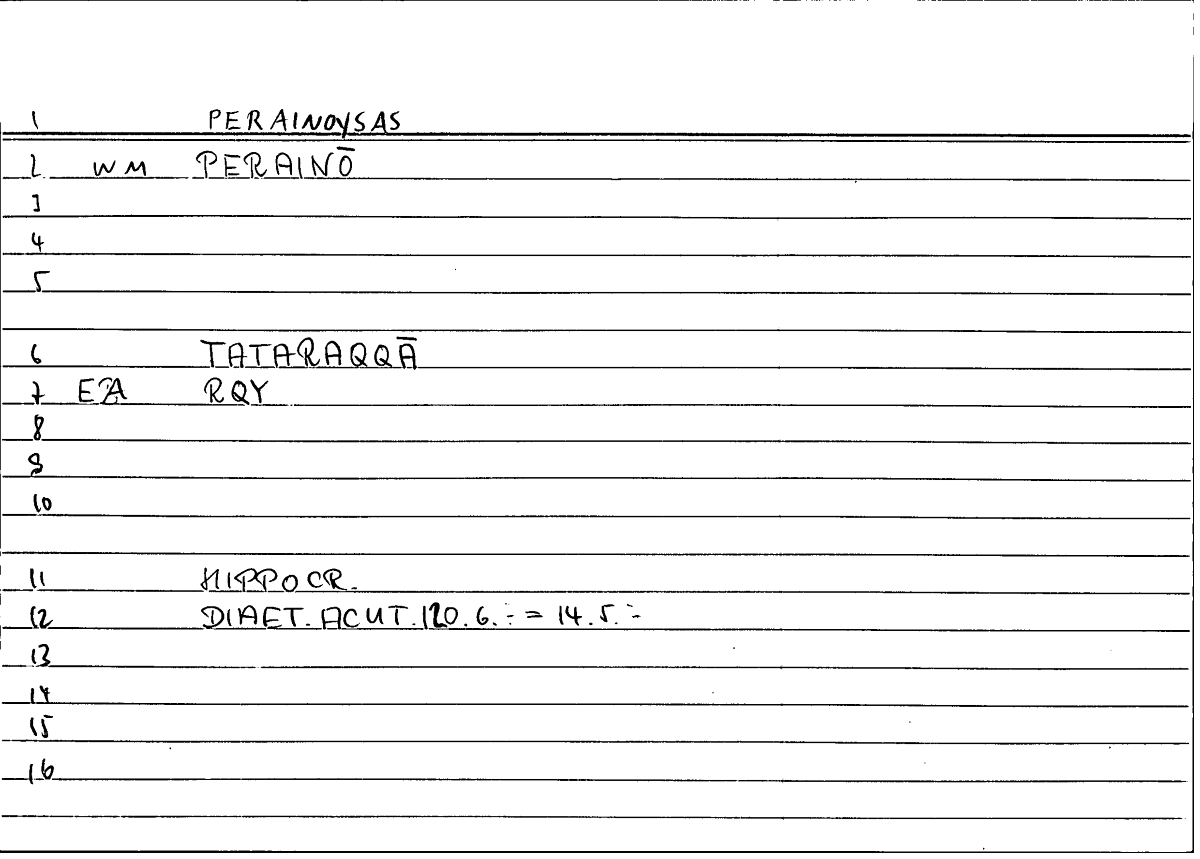 1 PERAINOYSAS
2 WM PERAINŌ
3
4
5
6 TATARAQQĀ
7 EA RQY
8
9
10
11 HIPPOCR.
12 DIAET. ACUT. 120.6. := 14.5. :-
13
14
15
16